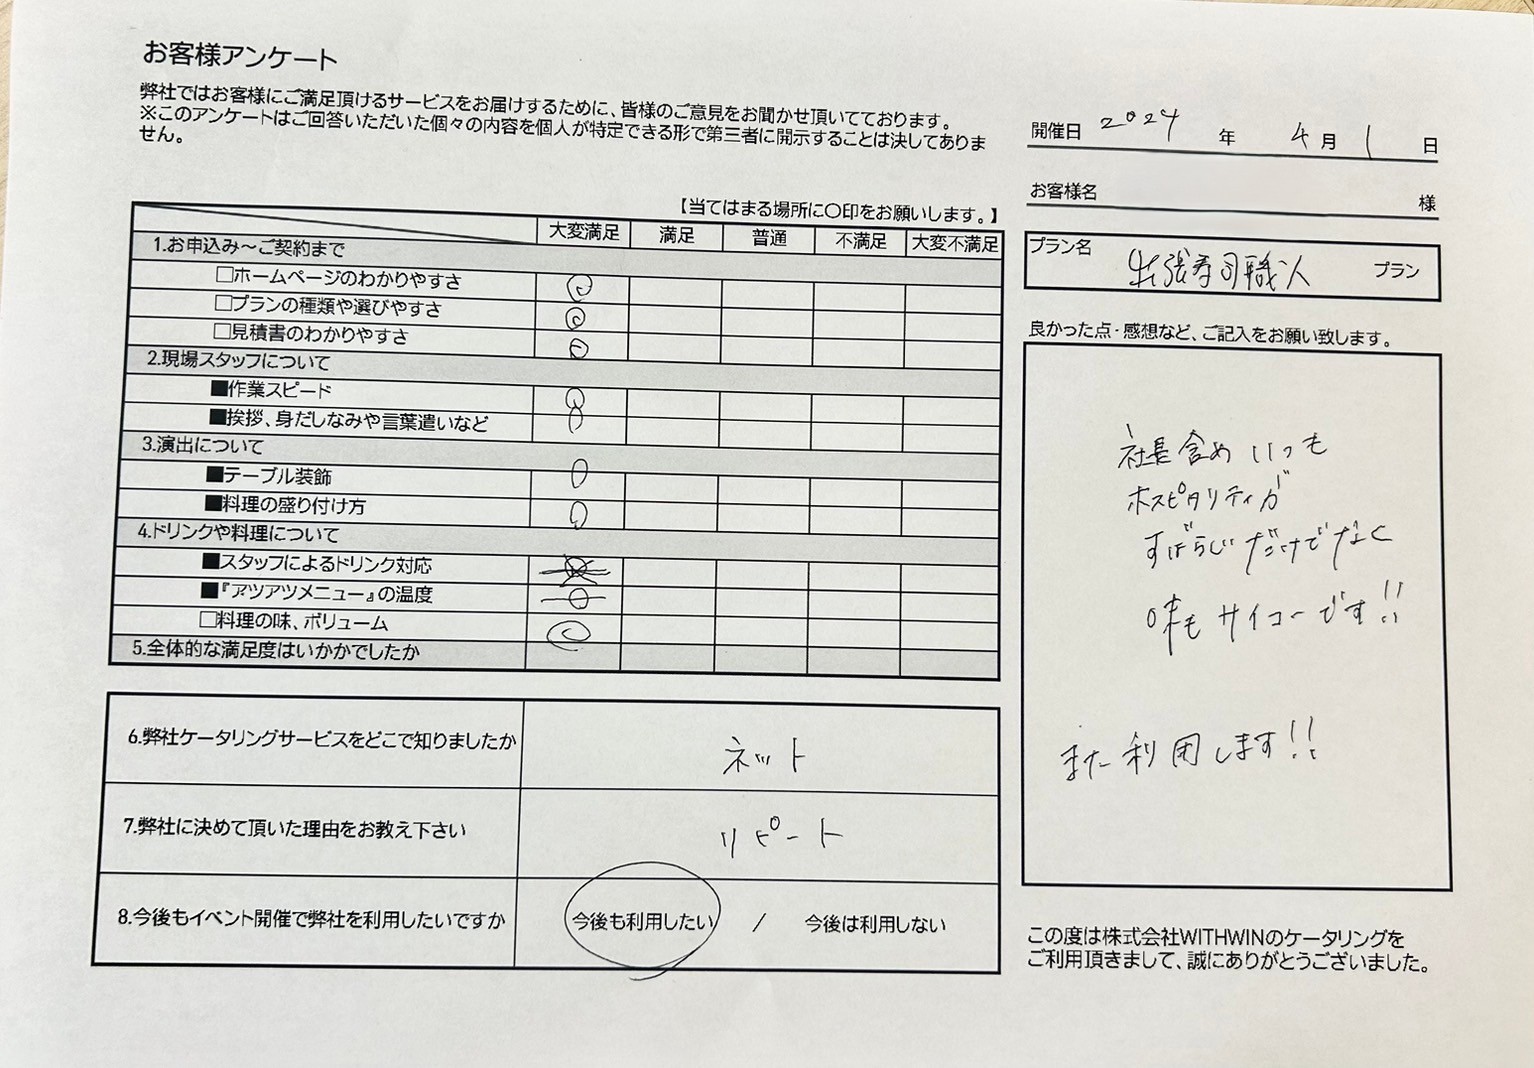 お客様アンケート
弊社ではお客様にご満足頂けるサービスをお届けするために、皆様のご意見をお聞かせ頂いております。
※このアンケートはご回答いただいた個々の内容を個人が特定できる形で第三者に開示することは決してありま
せん。
開催日 2024 年 4月 1 日
お客様名 様
プラン名 出張寿司職人 プラン
【当てはまる場所に〇印をお願いします。】
大変満足 満足 普通 不満足 大変不満足
1.お申込み～ご契約まで
□ホームページのわかりやすさ
□プランの種類や選びやすさ
□見積書のわかりやすさ
2.現場スタッフについて
■作業スピード
■挨拶、身だしなみや言葉遣いなど
3.演出について
■テーブル装飾
■料理の盛り付け方
4.ドリンクや料理について
■スタッフによるドリンク対応
■『アツアツメニュー』の温度
□料理の味、ボリューム
5.全体的な満足度はいかかでしたか
6.弊社ケータリングサービスをどこで知りましたか ネット
7.弊社に決めて頂いた理由をお教え下さい リピート
8.今後もイベント開催で弊社を利用したいですか 今後も利用したい / 今後は利用しない
良かった点・感想など、ご記入をお願い致します。
社長含めいつも
ホスピタリティが
すばらしいだけでなく
味もサイコーです!!
また利用します!!
この度は株式会社WITHWINのケータリングを
ご利用頂きまして、誠にありがとうございました。